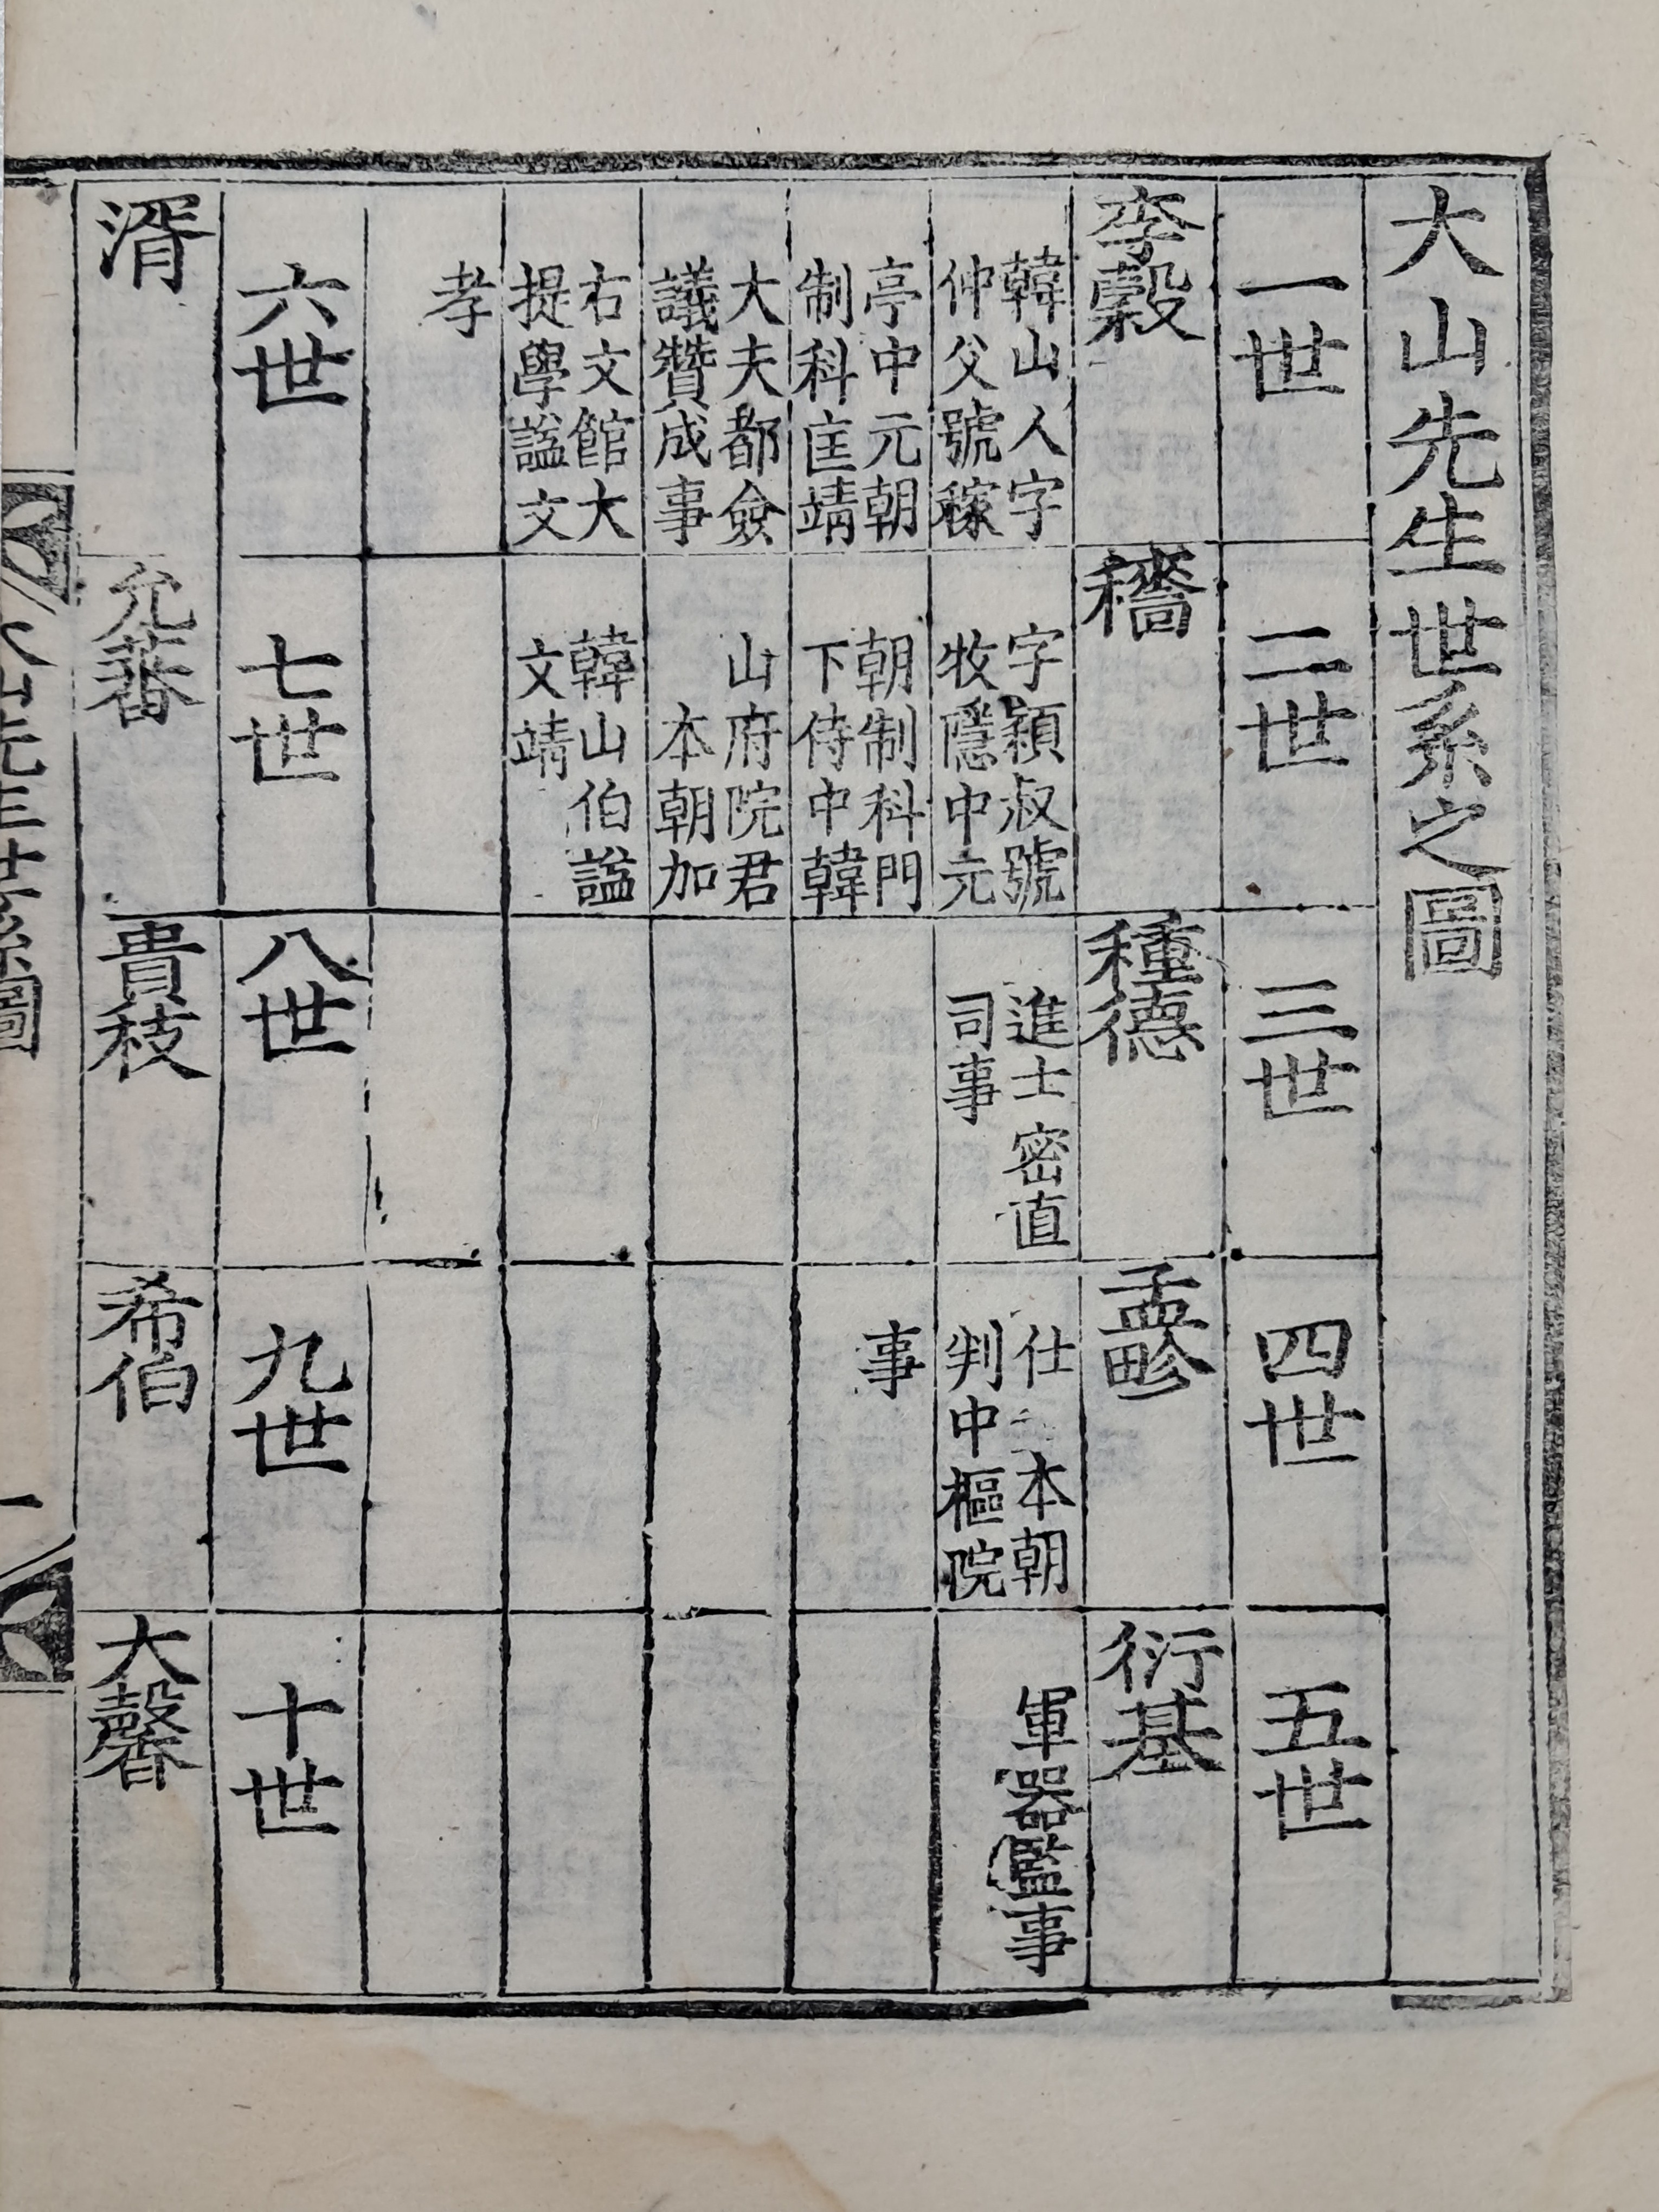 大山先生世系之圖
一世
二世
三世
四世
五世
李穀
韓山人字
仲父號稼
亭中元朝
制科匡靖
大夫都僉
議贊成事
右文館大
提學謚文
孝
穡
字穎叔號
牧隱中元
朝制科門
下侍中韓
山府院君
本朝加
韓山伯謚
文靖
種德
進士密直
司事
孟畛
仕 本朝
判中樞院
事
衍基
軍器監事
六世
七世
八世
九世
十世
湑
允蕃
貴枝
希伯
大馨
大山先生世系圖
一